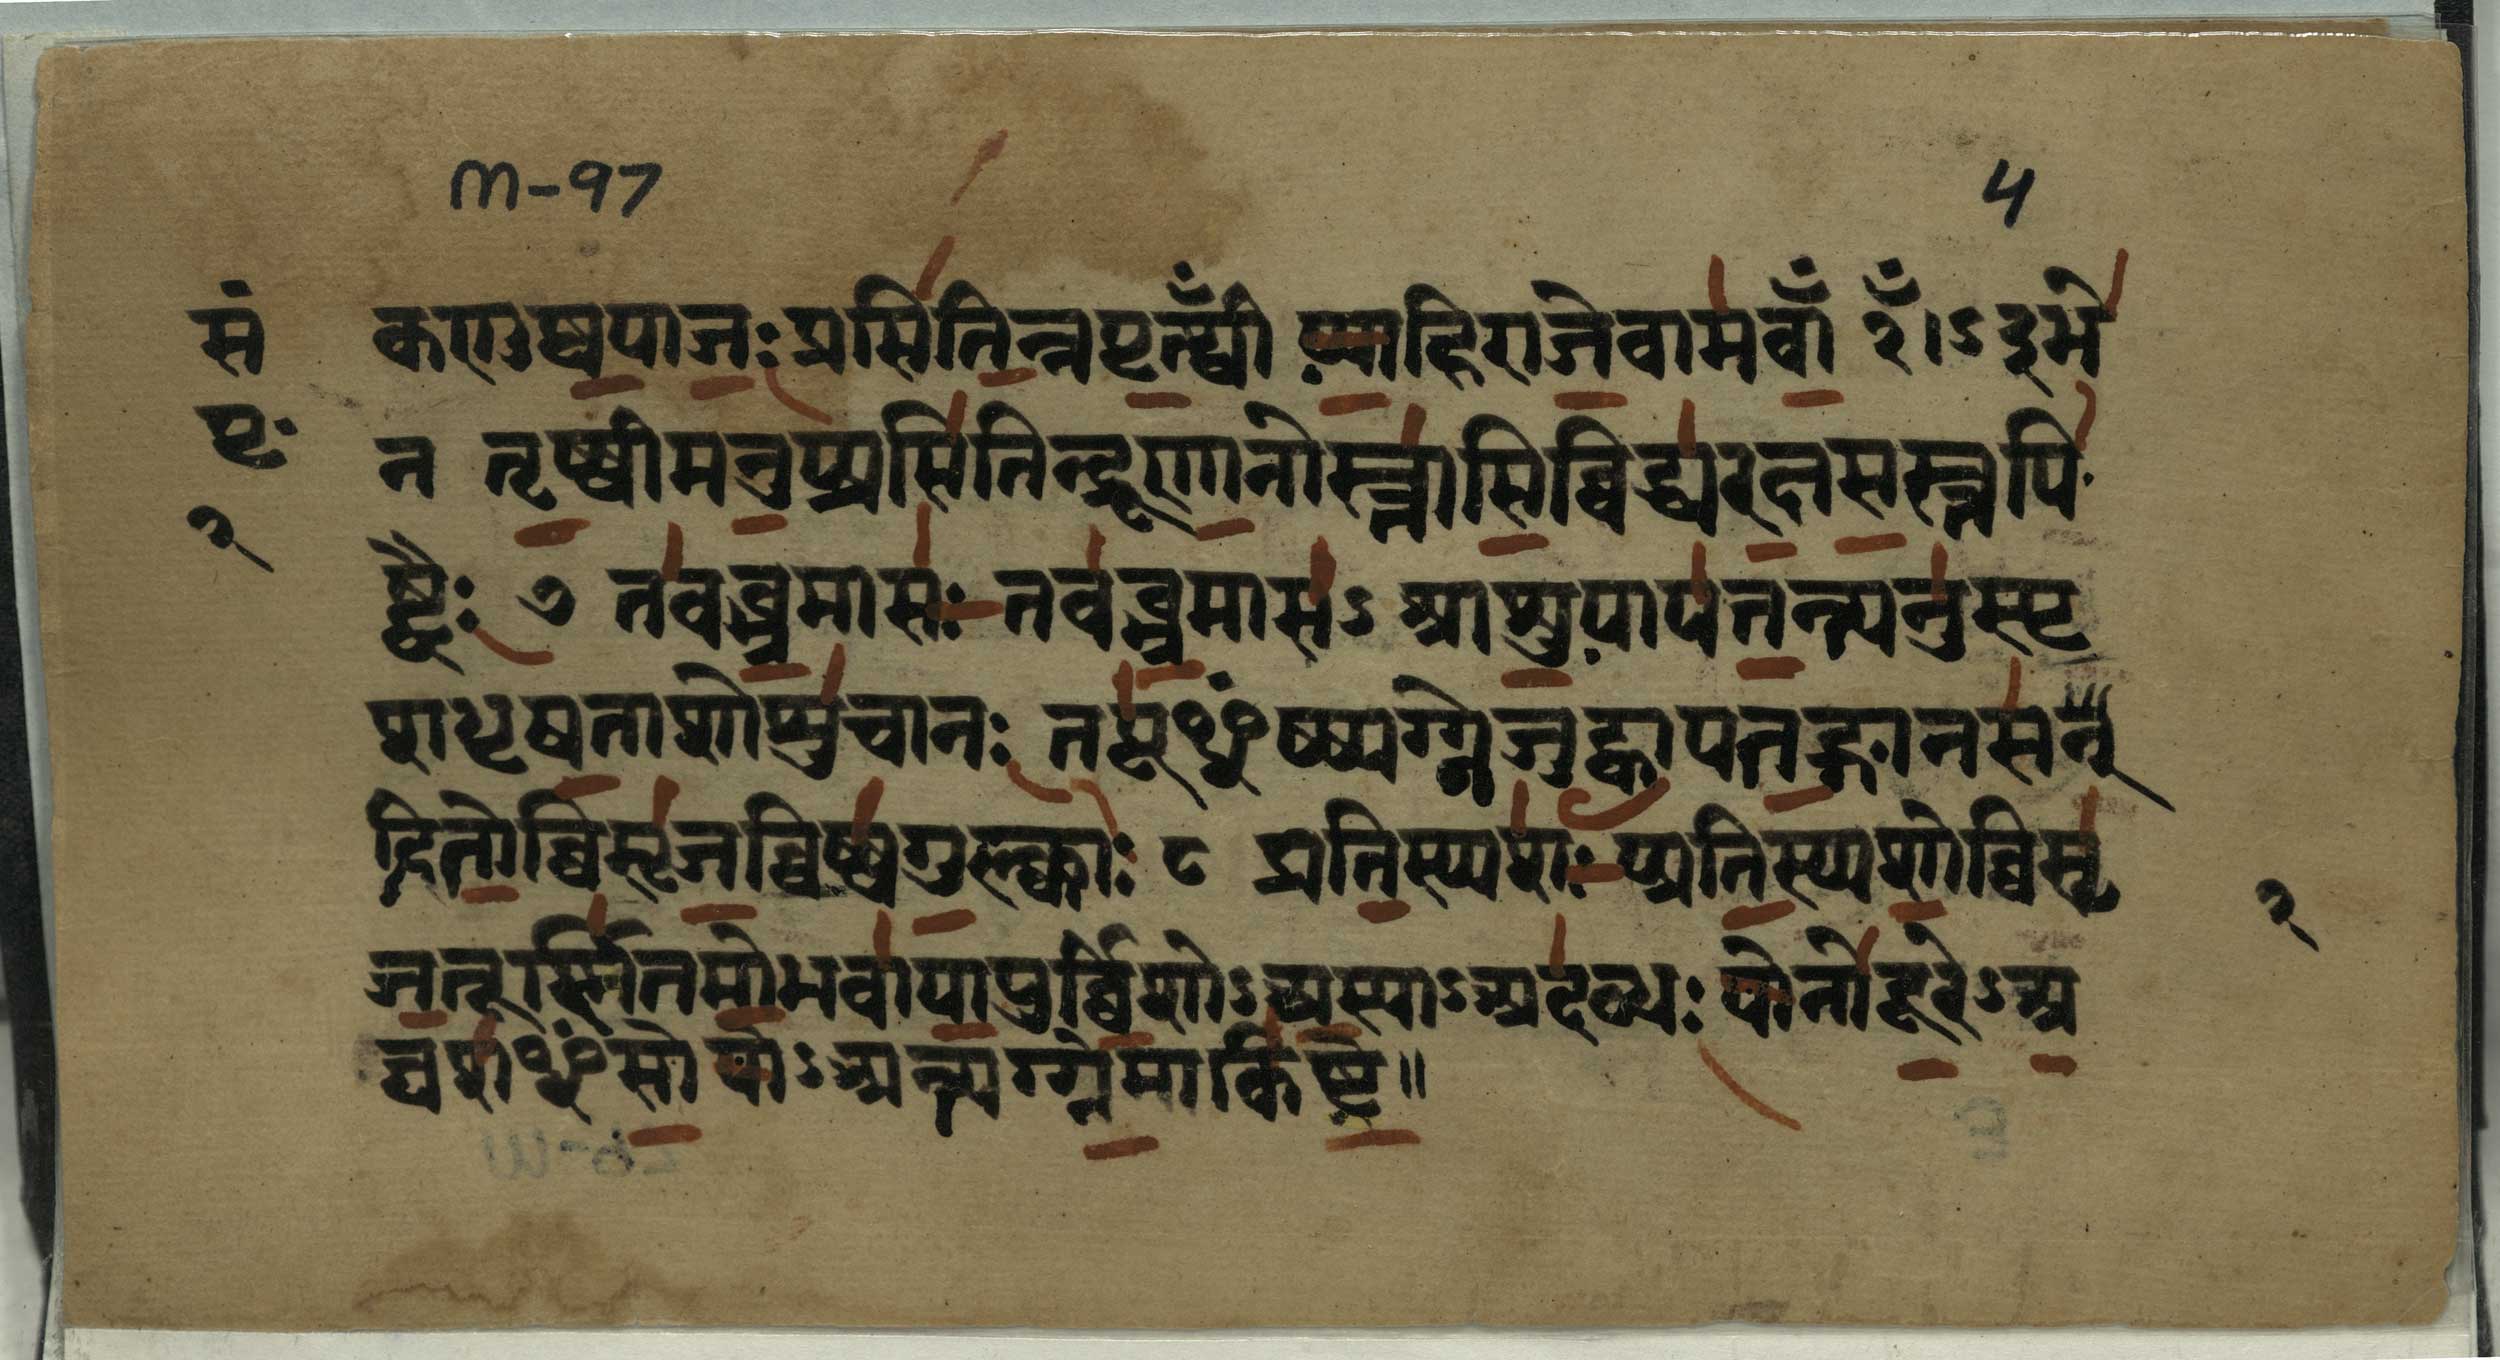 m-97
५
सं
कृणुष्वपाजः प्रसितिन्नपृत्थ्वीँ य्याहिराजेवामवाँ२ँ।ऽइभे
पृः
न तृष्ष्वीमनुप्प्रसितिन्द्रूणानोस्तासिविद्ध्यरक्षसस्तपि
२
ष्ठैः ७ तवब्भ्रमासः तवब्भ्रमासऽ आशुयापतन्त्यनुस्पृ
शधृषताशोशुचानः तपूᳪष्ष्यग्ग्नेजुह्वापतङ्गानसन्
दितोव्विसृजविष्ष्वगुल्काः ८ प्रतिस्प्पशः प्प्रतिस्प्पशोव्विसृ
२
जतूर्ण्णितमोभवापायुर्व्विशोऽअस्याऽअदब्धः योनोदूरेऽअ
घशᳪसो योऽअन्त्यग्ग्नेमाकिष्टे॥